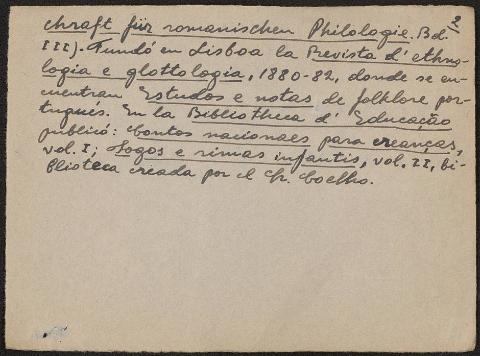 2
chraft für romanischen Philologie. Bd.
III). Fundó en Lisboa la Revista d'ethno-
logia e glottologia, 1880-82, donde se en-
cuentran Estudos e notas de folklore por-
tugués. En la Bibliotheca d'Educação
publicó: Contos nacionaes para creanças,
vol. I; Jogos e rimas infantis, vol. II, bi-
blioteca creada por el Sr. Coelho.